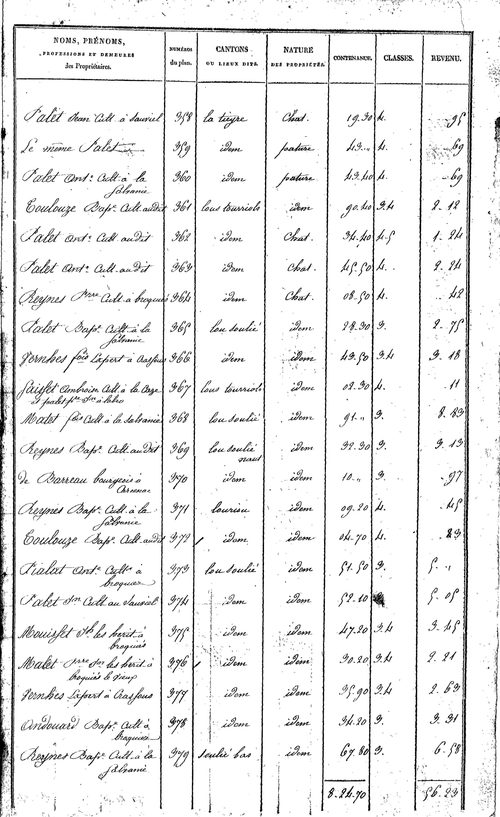 NOMS, PRÉNOMS, PROFESSIONS ET DEMEURES des Propriétaires. NUMÉROS du plan. CANTONS OU LIEUX DITS. NATURE DES PROPRIÉTÉS. CONTENANCE. CLASSES. REVENU.
Palet Jean Cult. à 358 la tieyre Chat. 19.30 4. 95
Le même Palet 359 idem pature 43.„ 4. 69
Palet Ant. Cult. à la 360 idem pature 43.40 4. 69
Salvanie
Toulouze Bapt. Cult. audit 361 lous tourriols idem 90.40 3.4 2.12
Palet Ant. Cult. audit 362 idem Chat. 34.40 4.5 1.24
Palet Ant. Cult. audit 363 idem Chat. 45.50 4. 2.24
Reynes Cult. à broquies 364 idem Chat. 08.50 4. 42
Palet Bapt. Cult. à la 365 lou soulié idem 28.30 3. 2.75
Salvanie
fois 366 idem idem 43.50 3.4 3.18
Ambroise Cult. à la 367 lous tourriols idem 08.30 4. 11
et palet
fois Cult. à la Salvanie 368 lou soulié idem 91.„ 3. 8.83
Reynes Bapt. Cult. audit 369 lou soulié idem 32.30 3. 3.13
haut
de Barreau bourgeois à 370 idem idem 10.„ 3. 97
Reynes Bapt. Cult. à la 371 lourieu idem 09.20 4. 45
Salvanie
Toulouze Bapt. Cult. audit 372 idem idem 04.70 4. 23
Ant. Cult. à 373 lou soulié idem 51.50 3. 5.„
broquies
Palet Cult. au 374 idem idem 52.10 5.05
les herit. à 375 idem idem 47.20 3.4 3.45
broquies
Malet les herit. à 376 idem idem 30.20 3.4 2.21
broquiès le vieux
à 377 idem idem 35.90 3.4 2.63
Andouard Bapt. Cult. à 378 idem idem 34.20 3. 3.31
broquies
Reynes Bapt. Cult. à la 379 soulié bas idem 67.80 3. 6.58
Salvanie
8.24.70 56.23